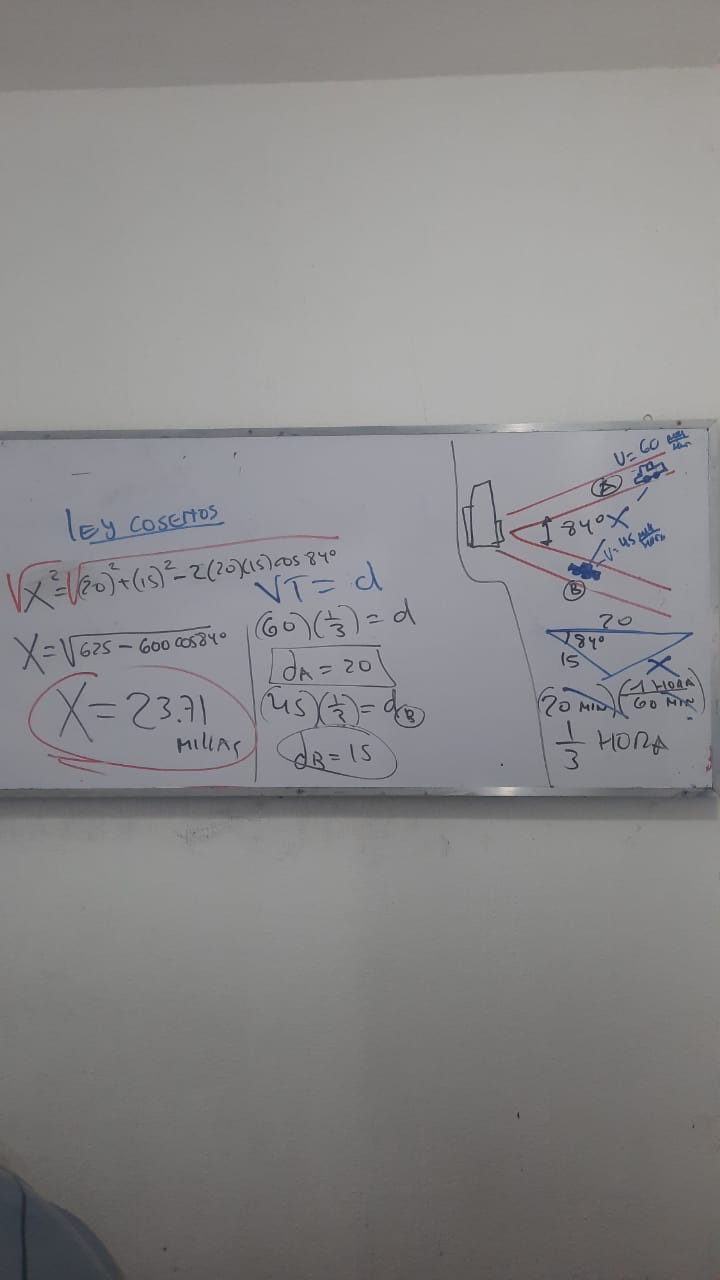 LEY COSENOS
√X²=√(20)²+(15)²-2(20)(15)cos 84°
X=√625-600cos84°
X=23.71
MILLAS
VT=d
(60)(1/3)=d
dA=20
(45)(1/3)=dB
dB=15
V=60 Mill/Hora
A
84° X
V=45 Mill/Hora
B
20
84°
15
X
(20 MIN)(1 HORA/60 MIN)
1/3 HORA